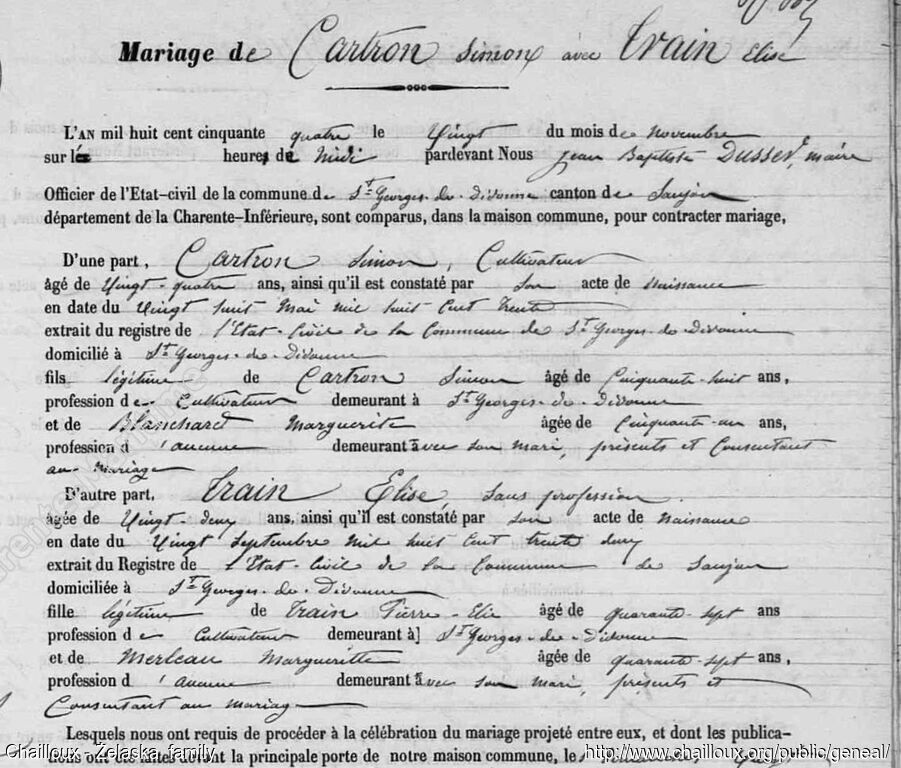 Mariage de Cartron Simon avec Train Elise
L'AN mil huit cent cinquante quatre le Vingt du mois de Novembre
sur l heure de Midi pardevant Nous Jean Baptiste Dusser, maire
Officier de l'Etat-civil de la commune de St Georges-de-Didonne canton de Saujon
département de la Charente-Inférieure, sont comparus, dans la maison commune, pour contracter mariage,
D'une part, Cartron Simon, Cultivateur
âgé de Vingt-quatre ans, ainsi qu'il est constaté par son acte de Naissance
en date du Vingt huit Mai mil huit Cent trente
extrait du registre de l'Etat-Civil de la Commune de St Georges-de-Didonne
domicilié à St Georges-de-Didonne
fils légitime de Cartron Simon âgé de Cinquante-huit ans,
profession de Cultivateur demeurant à St Georges-de-Didonne
et de Blanchard Marguerite âgée de Cinquante-un ans,
profession d'aucune demeurant avec son mari, présents et Consentant
au Mariage
D'autre part, Train Elise, sans profession
âgée de Vingt-deux ans, ainsi qu'il est constaté par son acte de Naissance
en date du Vingt Septembre Mil huit Cent trente deux
extrait du Registre de l'Etat-Civil de la Commune de Saujon
domiciliée à St Georges-de-Didonne
fille légitime de Train Pierre-Elie âgé de quarante-sept ans
profession de Cultivateur demeurant à St Georges-de-Didonne
et de Merleau Marguerite âgée de quarante-sept ans,
profession d'aucune demeurant avec son mari, présents et
Consentant au mariage
Lesquels nous ont requis de procéder à la célébration du mariage projeté entre eux, et dont les publica-
tions ont été faites devant la principale porte de notre maison commune, le
Chailloux - Zelaska family
http://www.chailloux.org/public/geneal/